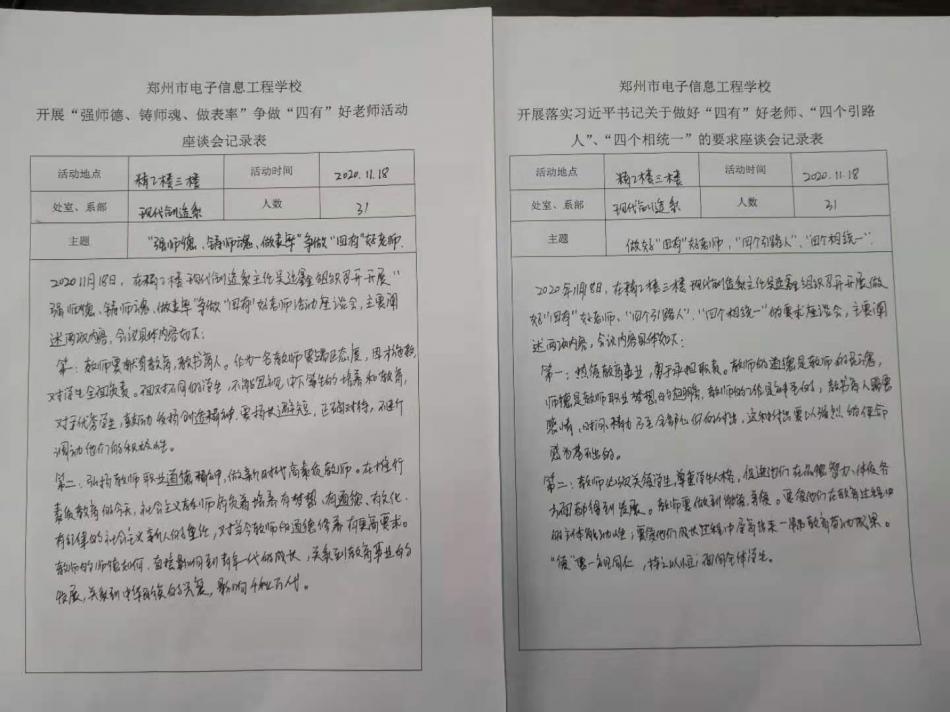 郑州市电子信息工程学校
开展“强师德、铸师魂、做表率”争做“四有”好老师活动
座谈会记录表
活动地点 精工楼三楼 活动时间 2020.11.18
处室、系部 现代制造系 人数 31
主题 “强师德、铸师魂、做表率”争做“四有”好老师.
2020 11月18日,在精工楼三楼现代制造系主任吴连鑫组织召开开展“
强师德、铸师魂、做表率”争做“四有”好老师活动座谈会,主要阐
述两项内容,会议具体内容如下:
第一:教师要献身教育,教书育人。作为一名教师要端正态度,因材施教,
对学生全面负责。面对不同的学生,不能忽视中下等生的培养和教育,
对于优秀学生,鼓励发扬创造精神.要扬长避短,正确对待,不断
调动他们的积极性。
第二:弘扬教师职业道德精神,做新时代高素质教师。在大力推行
素质教育的今天,社会主义教师肩负着培养有梦想、有道德、有文化、
有纪律的社会主义新人的重任,对当今教师的道德修养有更高要求。
教师的师德如何,直接影响到青年一代的成长,关系到教育事业的
发展,关系到中华民族的兴衰,影响千秋万代。
郑州市电子信息工程学校
开展落实习近平书记关于做好“四有”好老师、“四个引路
人”、“四个相统一”的要求座谈会记录表
活动地点 精工楼三楼 活动时间 2020.11.18
处室、系部 现代制造系 人数 31
主题 做好“四有”好老师,“四个引路人”、“四个相统一”.
2020年11月18日,在精工楼三楼现代制造系主任吴连鑫组织召开开展做
好“四有”好老师、“四个引路人”、“四个相统一”的要求座谈会,主要阐
述两项内容,会议内容具体如下:
第一:热爱教育事业,勇于承担职责。教师的道德是教师的灵魂,
师德是教师职业梦想的翅膀,教师的工作是神圣的,教书育人需要
感情,时间、精力乃至全部心血的付出,这种付出要以强烈的使命
感为基础的。
第二:教师必须关爱学生,尊重学生人格,促进他们在品德、智力、体质各
方面都得到发展。教师要做到
的主体能动性;
“ 要一视同仁,持之以恒;面向全体学生。